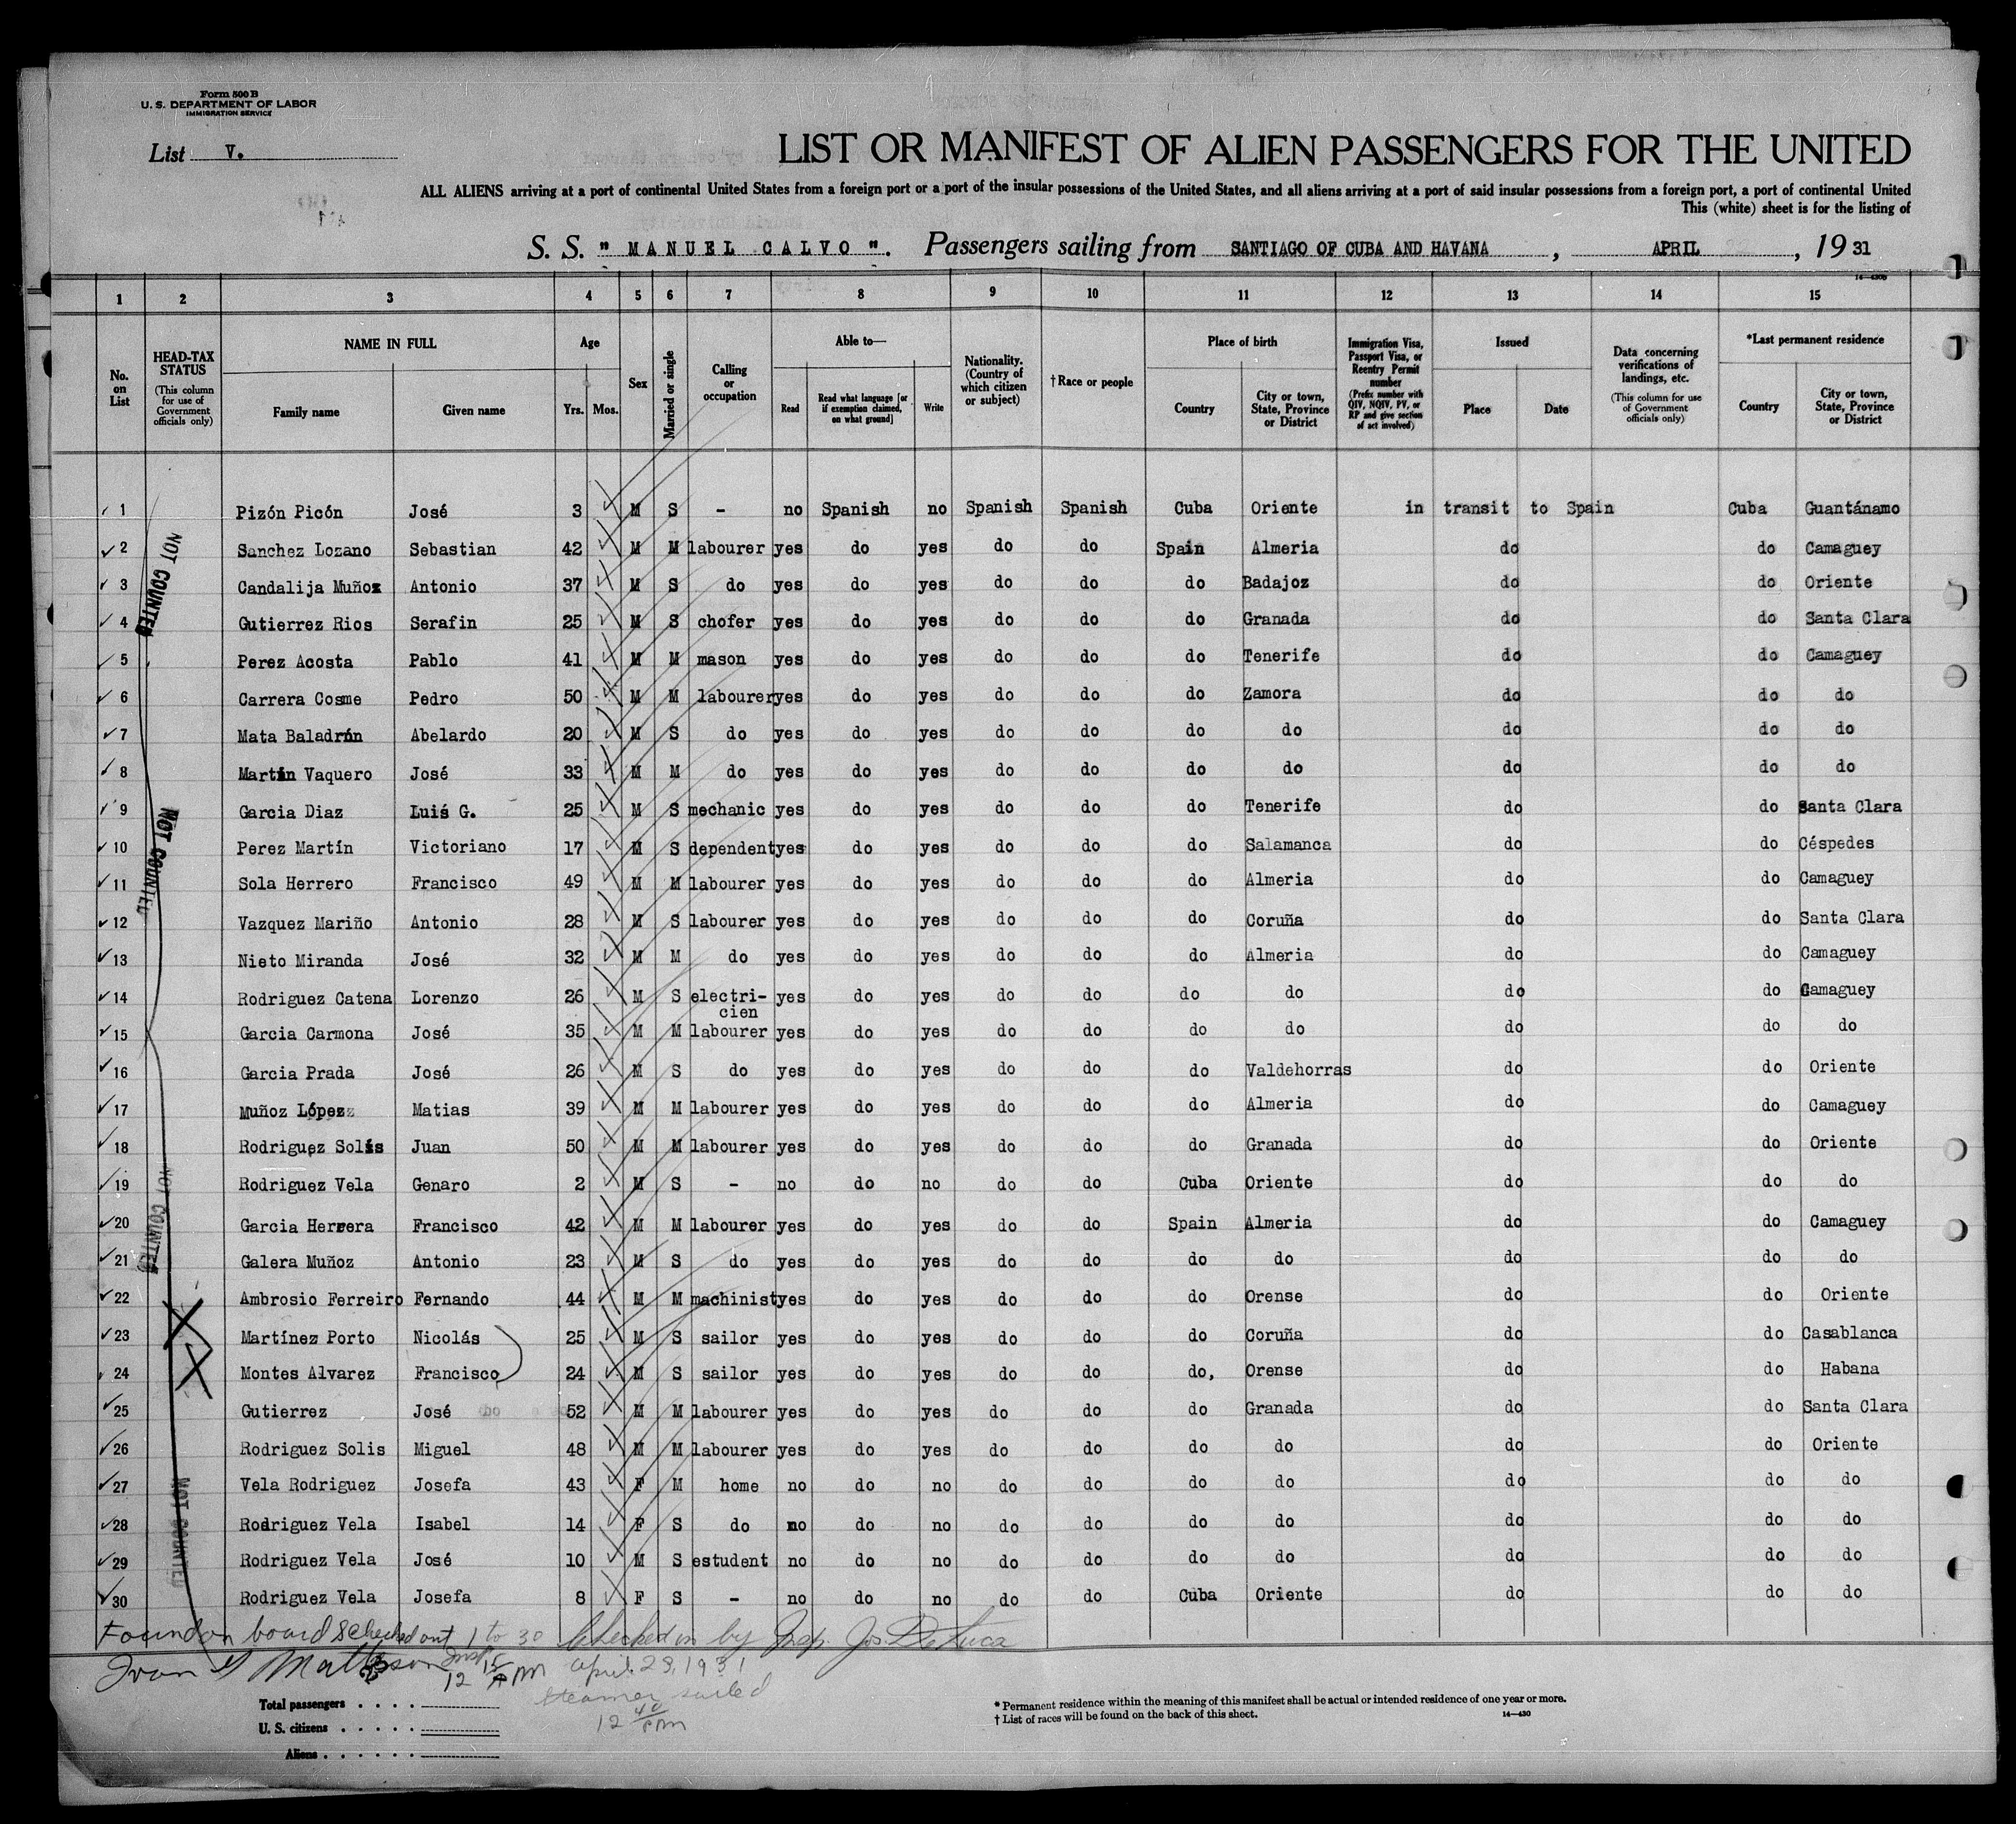 Form 500 B
U. S. DEPARTMENT OF LABOR
IMMIGRATION SERVICE
List V.
LIST OR MANIFEST OF ALIEN PASSENGERS FOR THE UNITED
ALL ALIENS arriving at a port of continental United States from a foreign port or a port of the insular possessions of the United States, and all aliens arriving at a port of said insular possessions from a foreign port, a port of continental United
This (white) sheet is for the listing of
S. S. " MANUEL CALVO ". Passengers sailing from SANTIAGO OF CUBA AND HAVANA , APRIL , 19 31
14—430b
1 2 3 4 5 6 7 8 9 10 11 12 13 14 15
No. on List
HEAD-TAX STATUS (This column for use of Government officials only)
NAME IN FULL
Family name Given name
Age
Yrs. Mos.
Sex
Married or single
Calling or occupation
Able to—
Read
Read what language [or if exemption claimed, on what ground]
Write
Nationality. (Country of which citizen or subject)
†Race or people
Place of birth
Country
City or town, State, Province or District
Immigration Visa, Passport Visa, or Reentry Permit number (Prefix number with QIV, NQIV, PV, or RP and give section of act involved)
Issued
Place Date
Data concerning verifications of landings, etc. (This column for use of Government officials only)
*Last permanent residence
Country
City or town, State, Province or District
1 Pizón Picón José 3 M S - no Spanish no Spanish Spanish Cuba Oriente in transit to Spain Cuba Guantánamo
2 Sanchez Lozano Sebastian 42 M M labourer yes do yes do do Spain Almeria do do Camaguey
3 Candalija Muñoz Antonio 37 M S do yes do yes do do do Badajoz do do Oriente
4 Gutierrez Rios Serafin 25 M S chofer yes do yes do do do Granada do do Santa Clara
5 Perez Acosta Pablo 41 M M mason yes do yes do do do Tenerife do do Camaguey
6 Carrera Cosme Pedro 50 M M labourer yes do yes do do do Zamora do do do
7 Mata Baladrón Abelardo 20 M S do yes do yes do do do do do do do
8 Martin Vaquero José 33 M M do yes do yes do do do do do do do
9 Garcia Diaz Luis G. 25 M S mechanic yes do yes do do do Tenerife do do Santa Clara
10 Perez Martín Victoriano 17 M S dependent yes do yes do do do Salamanca do do Céspedes
11 Sola Herrero Francisco 49 M M labourer yes do yes do do do Almeria do do Camaguey
12 Vazquez Mariño Antonio 28 M S labourer yes do yes do do do Coruña do do Santa Clara
13 Nieto Miranda José 32 M M do yes do yes do do do Almeria do do Camaguey
14 Rodriguez Catena Lorenzo 26 M S electri-cien yes do yes do do do do do do Camaguey
15 Garcia Carmona José 35 M M labourer yes do yes do do do do do do do
16 Garcia Prada José 26 M S do yes do yes do do do Valdehorras do do Oriente
17 Muñoz López Matias 39 M M labourer yes do yes do do do Almeria do do Camaguey
18 Rodriguez Solis Juan 50 M M labourer yes do yes do do do Granada do do Oriente
19 Rodriguez Vela Genaro 2 M S - no do no do do Cuba Oriente do do do
20 Garcia Herrera Francisco 42 M M labourer yes do yes do do Spain Almeria do do Camaguey
21 Galera Muñoz Antonio 23 M S do yes do yes do do do do do do do
22 Ambrosio Ferreiro Fernando 44 M M machinist yes do yes do do do Orense do do Oriente
23 Martínez Porto Nicolás 25 M S sailor yes do yes do do do Coruña do do Casablanca
24 Montes Alvarez Francisco 24 M S sailor yes do yes do do do, Orense do do Habana
25 Gutierrez José 52 M M labourer yes do yes do do do Granada do do Santa Clara
26 Rodriguez Solis Miguel 48 M M labourer yes do yes do do do do do do Oriente
27 Vela Rodriguez Josefa 43 F M home no do no do do do do do do do
28 Rodriguez Vela Isabel 14 F S do no do no do do do do do do do
29 Rodriguez Vela José 10 M S estudent no do no do do do do do do do
30 Rodriguez Vela Josefa 8 F S - no do no do do Cuba Oriente do do do
NOT COUNTED
NOT COUNTED
NOT COUNTED
NOT COUNTED
Found on board & checked out 1 to 30 Checked in by Insp. Jos. DeLuca
Insp. 12 15 PM April 23, 1931
Steamer sailed
12 40 PM
Total passengers . . . .
U. S. citizens . . . . .
Aliens . . . . . .
* Permanent residence within the meaning of this manifest shall be actual or intended residence of one year or more.
† List of races will be found on the back of this sheet.
14—430